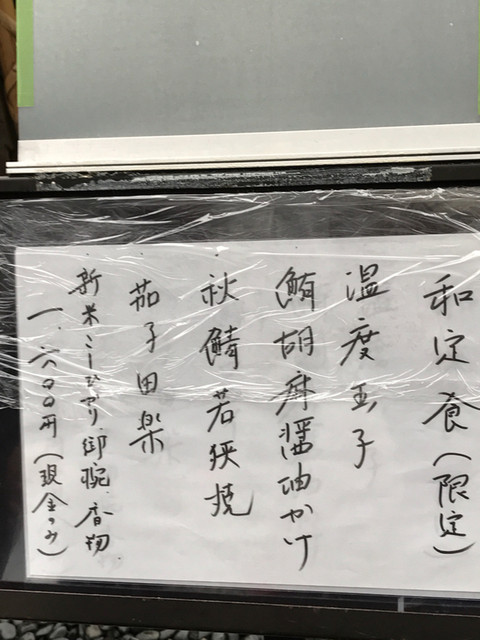 和定食(限定)
温度玉子
鮪胡麻醤油かけ
秋鯖若狭焼
茄子田楽
新米こしひかり、御椀、香物
一、六〇〇円(現金のみ)